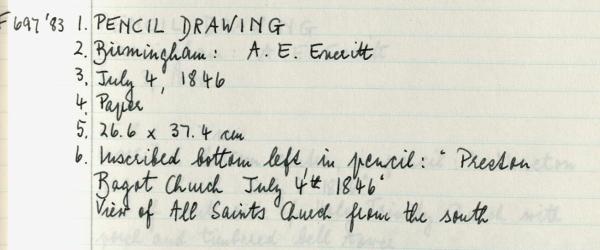 F697'83 1. PENCIL DRAWING
2. Birmingham: A. E. Everitt
3. July 4, 1846
4. Paper
5. 26.6 x 37.4 cm
6. Inscribed bottom left, in pencil: "Preston
Bagot Church July 4th 1846"
View of All Saints Church from the south